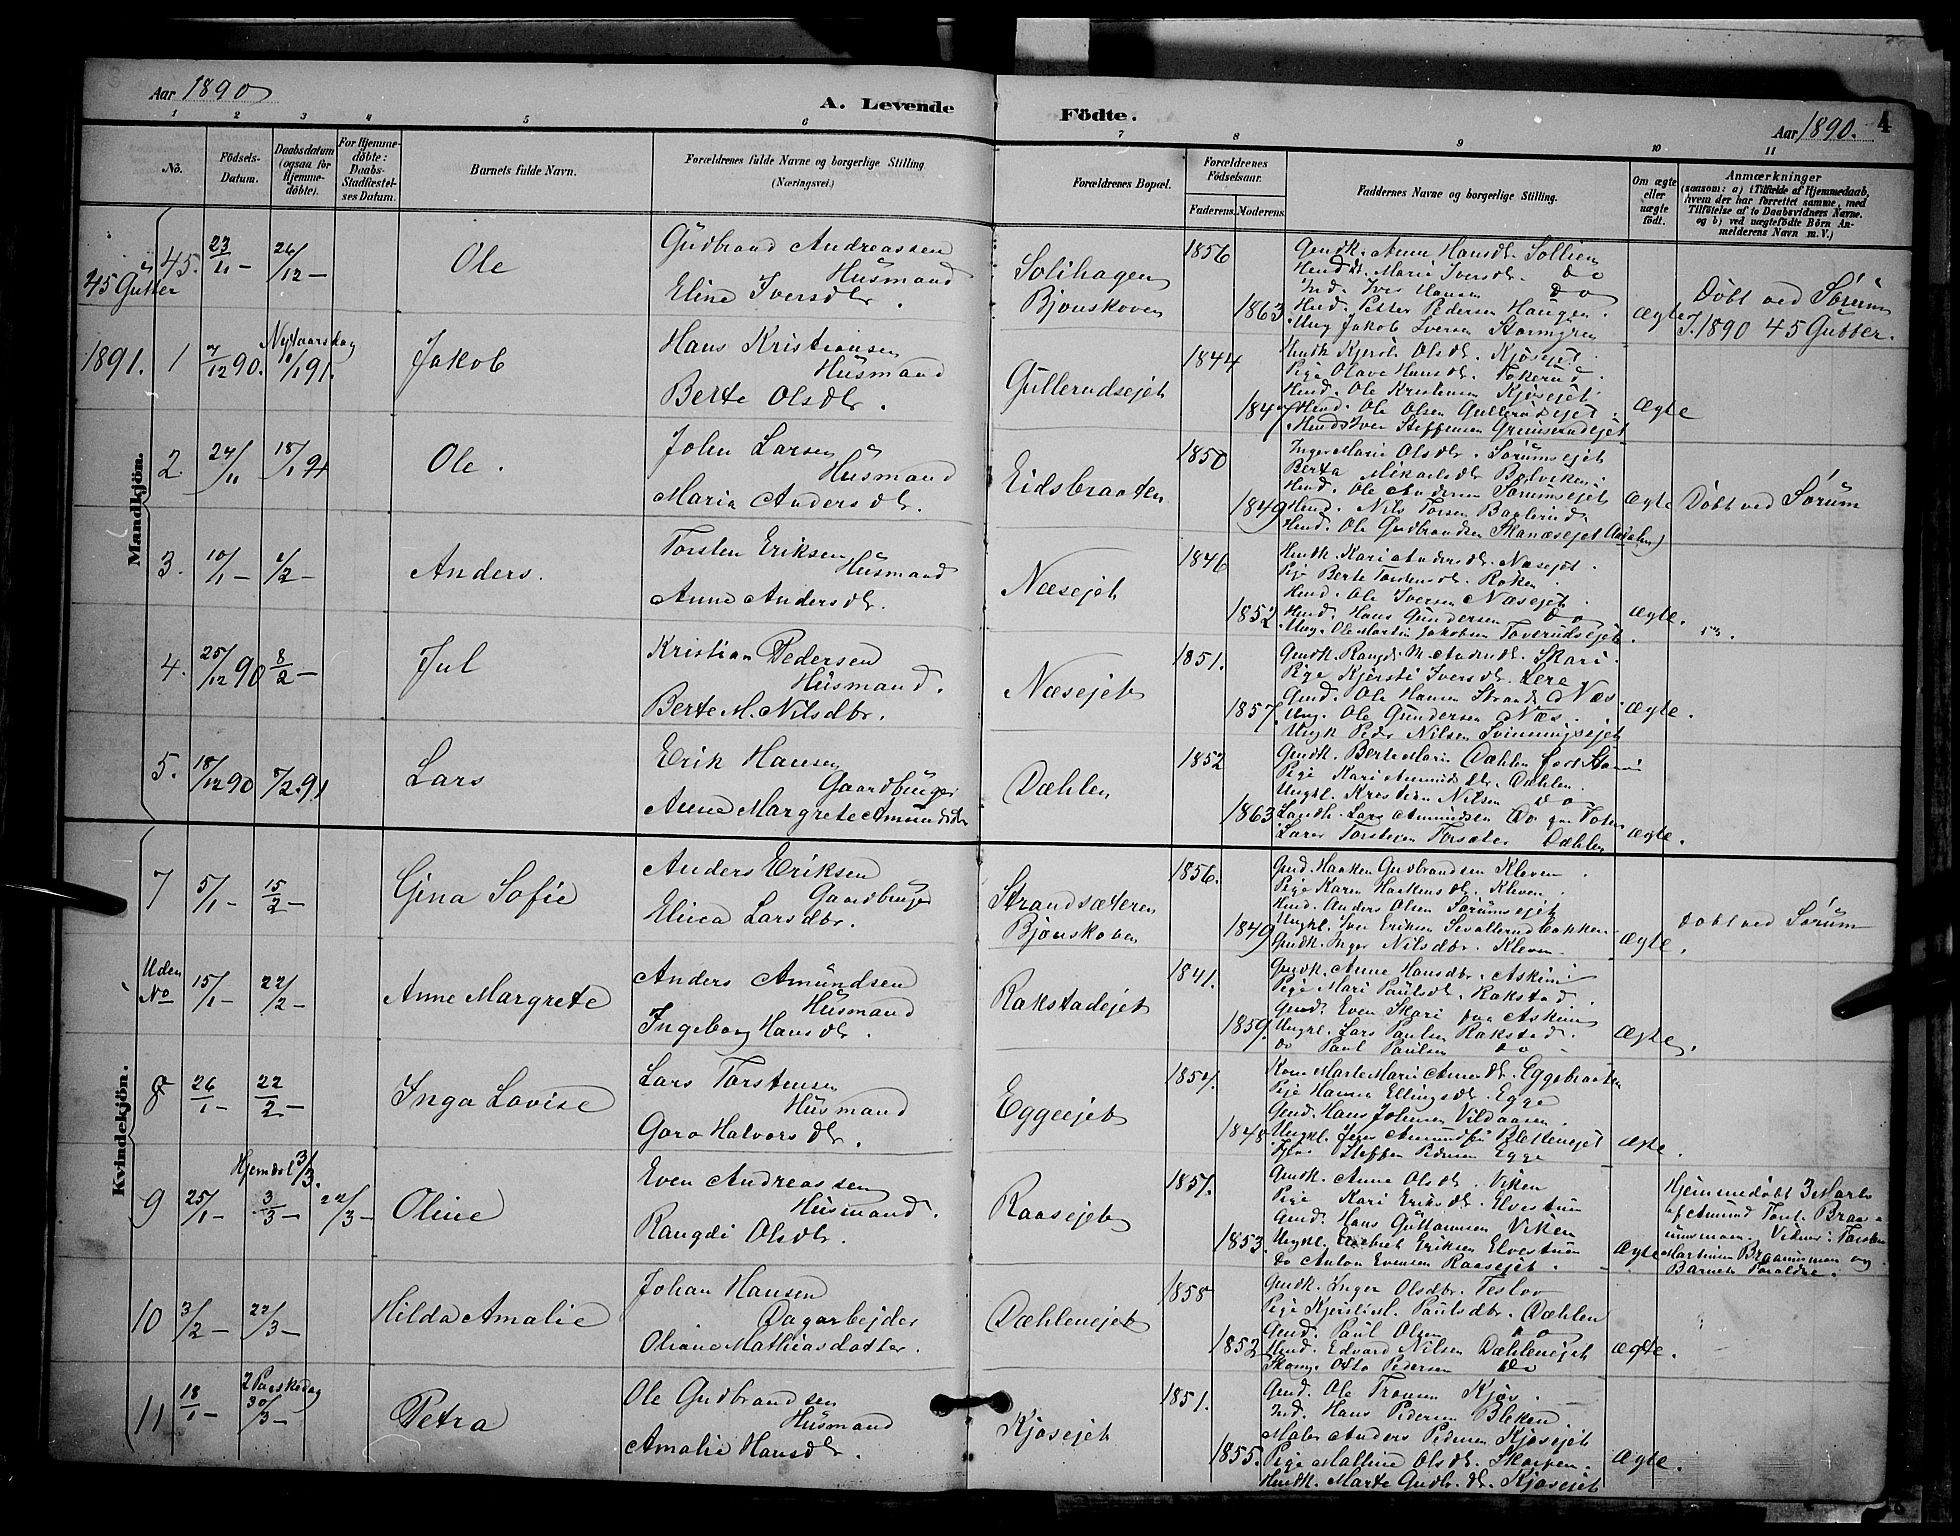 Aar 1890
A. Levende
Födte.
Aar 1890.
4
1 2 3 4 5 6 7 8 9 10 11
No.
Födsels-
Datum.
Daabsdatum
(ogsaa for
Hjemme-
döbte).
For Hjemme-
döbte:
Daabs-
Stadfæstel-
ses Datum.
Barnets fulde Navn.
Forældrenes fulde Navne og borgerlige Stilling.
(Næringsvei.)
Forældrenes Bopæl.
Forældrenes
Födselsaar.
Faderens. Moderens.
Faddernes Navne og borgerlige Stilling.
Om ægte
eller
uægte
födt.
Anmærkninger
(saasom: a) i Tilfælde af Hjemmedaab,
hvem der har forrettet samme, med
Tilföielse af to Daabsvidners Navne.
og b) ved uægtefödte Börn An-
melderens Navn m. V.)
Mandkjön.
45.
45 Gutter
23/11 -
26/12 -
Ole
Gudbrand Andreassen
Husmand
Eline Iversdtr.
Solihagen
Bjonskoven
1856
1863
Gmdk. Anne Hansdtr. Sollien
Husmd. Marie Iversdtr. Do
Ind. Iver Hansen Do
Husmd. Petter Pedersen Haugen
Ung. Jakob Iversen
ægte
Döbt ved Sörum
I. 1890 45 Gutter.
1891.
1
/12 90.
Nytaarsdag
1/1 91.
Jakob
Hans Kristiansen
Husmand
Berte Olsdtr.
Gullerudsejet
1844
1847
Husmk. Kjersti Olsdtr. Kjösejet
Pige Olave Hansdtr.
Husmd. Ole Kristiansen Kjösejet
Husmd. Ole Olsen Gullerudsejet
Husmd. Iver Steffensen Grimsrudejet
Ægte
2.
24/11
18/1 91
Ole.
John Larsen
Husmand
Maria Andersdtr.
Eidsbraaten
1850
1849
Inger Marie Olsdtr. Sörumsejet
Berta Mikaelsdtr.
Husmd. Ole Andersen Sörumsejet
Husmd. Nils Torsen
Husmd. Ole Gudbrandsen
Ægte
Döbt ved Sörum
3.
10/1 -
1/2 -
Anders.
Torsten Eriksen
Husmand
Anne Andersdtr.
Næsejet
1846
1852
Husmk. Kari Andersdtr. Næsejet
Pige Berte Torstensdtr. Roken
Husmd. Ole Iversen Næsejet
Husmd. Hans Gundersen Do
Ung. Ole Martin Jakobsen Toverudsejet
Ægte.
4.
25/12 90
8/2 -
Jul
Kristian Pedersen
Husmand.
Berte M. Nilsdtr.
Næsejet
1851.
1857.
Gmdk. Rangdi M. Andersdtr. Skari.
Pige Kjersti Iversdtr. Lere
Gmd. Ole Hansen Strande Næs.
Ung. Ole Gundersen Næs.
Ungk. Peder Nilsen Svinningsejet
Ægte.
5.
18/12 90
/2 91
Lars
Erik Hansen
Gaardbruger
Anne Margrete Amundsdtr
Dæhlen
1852
1863
Gmdk. Berte Marie Dæhlen
Pige Kari Amundsdtr. Dæhlen.
Ungkl. Kristian Nilsen Do
Landh. Lars Amundsen Do
Lærer Torstein Dæhlen
Ægte.
Kvindekjön.
7
5/1 -
15/2 -
Gina Sofie
Anders Eriksen
Gaardbruger
Elina Larsdtr.
Strandsæteren
Bjonskoven
1856.
1849
Gmd. Haaken Gudbrandsen Kleven
Pige Karen Haakensdtr. Kleven
Husmd. Anders Olsen Sörumsejet
Ungkl. Iver Eriksen Sevallerudbakken
Gmdk. Inger Nilsdtr. Kleven.
Ægte.
Döbt ved Sörum
Uden
No
15/1 -
22/2 -
Anne Margrete
Anders Amundsen
Husmand
Ingeborg Hansdtr.
Rakstadejet
1841.
1859.
Gmdk. Anne Hansdtr. Askim
Pige Mari Paulsdtr. Rakstad
Gmd. Even Skari paa Askim
Ungkl. Lars Paulsen Rakstad
do Paul Paulsen do
Ægte.
8
26/1 -
22/2 -
Inga Lovise
Lars Torstensen
Husmand
Goro Halvorsdtr.
Eggeejet
1854.
1848.
Kone Marte Marie Amundsdtr. Eggebraaten
Pige Hanna Ellingsdtr. Egge
Gmd. Hans Johnsen Vildaasen
Ungkl. Amundsen
Steffen Pedersen Egge
Ægte.
9
25/1 -
Hjemdöbt 3/3.
3/3 -
22/3 -
Oline
Even Andreassen
Husmand.
Rangdi Olsdtr.
Raasejet
1857.
1853.
Gmdk. Anne Olsdtr. Viken
Pige Kari Eriksdtr. Elvestuen
Gmd. Hans Guttormsen Viken
Ungkl. Engebret Eriksen Elvestuen
Do Anton Evensen Raasejet.
Ægte
Hjemmedöbt 3 Marts
af Amund Torst. Braa-
unmoen. Vidner: Torsten
Martinsen Braaunmoen og
Barnets Foreldre.
10
3/2 -
22/3 -
Hilda Amalie
Johan Hansen
Dagarbejder
Oliane Mathiasdatter.
Dæhlenejet
1858
1852
Gmdk. Inger Olsdtr. Teslo
Pige Kjersti M. Paulsdtr. Dæhlen
Gmd. Paul Olsen do
Husmd. Edvard Nilsen Dæhlenejet
Skomg. Otto Pedersen Do
Ægte.
11
18/1 -
2 Paaskedag
30/3 -
Petra
Ole Gudbrandsen
Husmand
Amalie Hansdtr.
Kjösejet
1851.
1855.
Gmd. Ole Tronsen Kjös
Ind. Hans Pedersen Bleken
Maler Anders Pedersen Kjösejet
Pige Malline Olsdtr. Skarpen.
Husmk. Marte Gudbr.dtr. Kjösejet
Ægte.